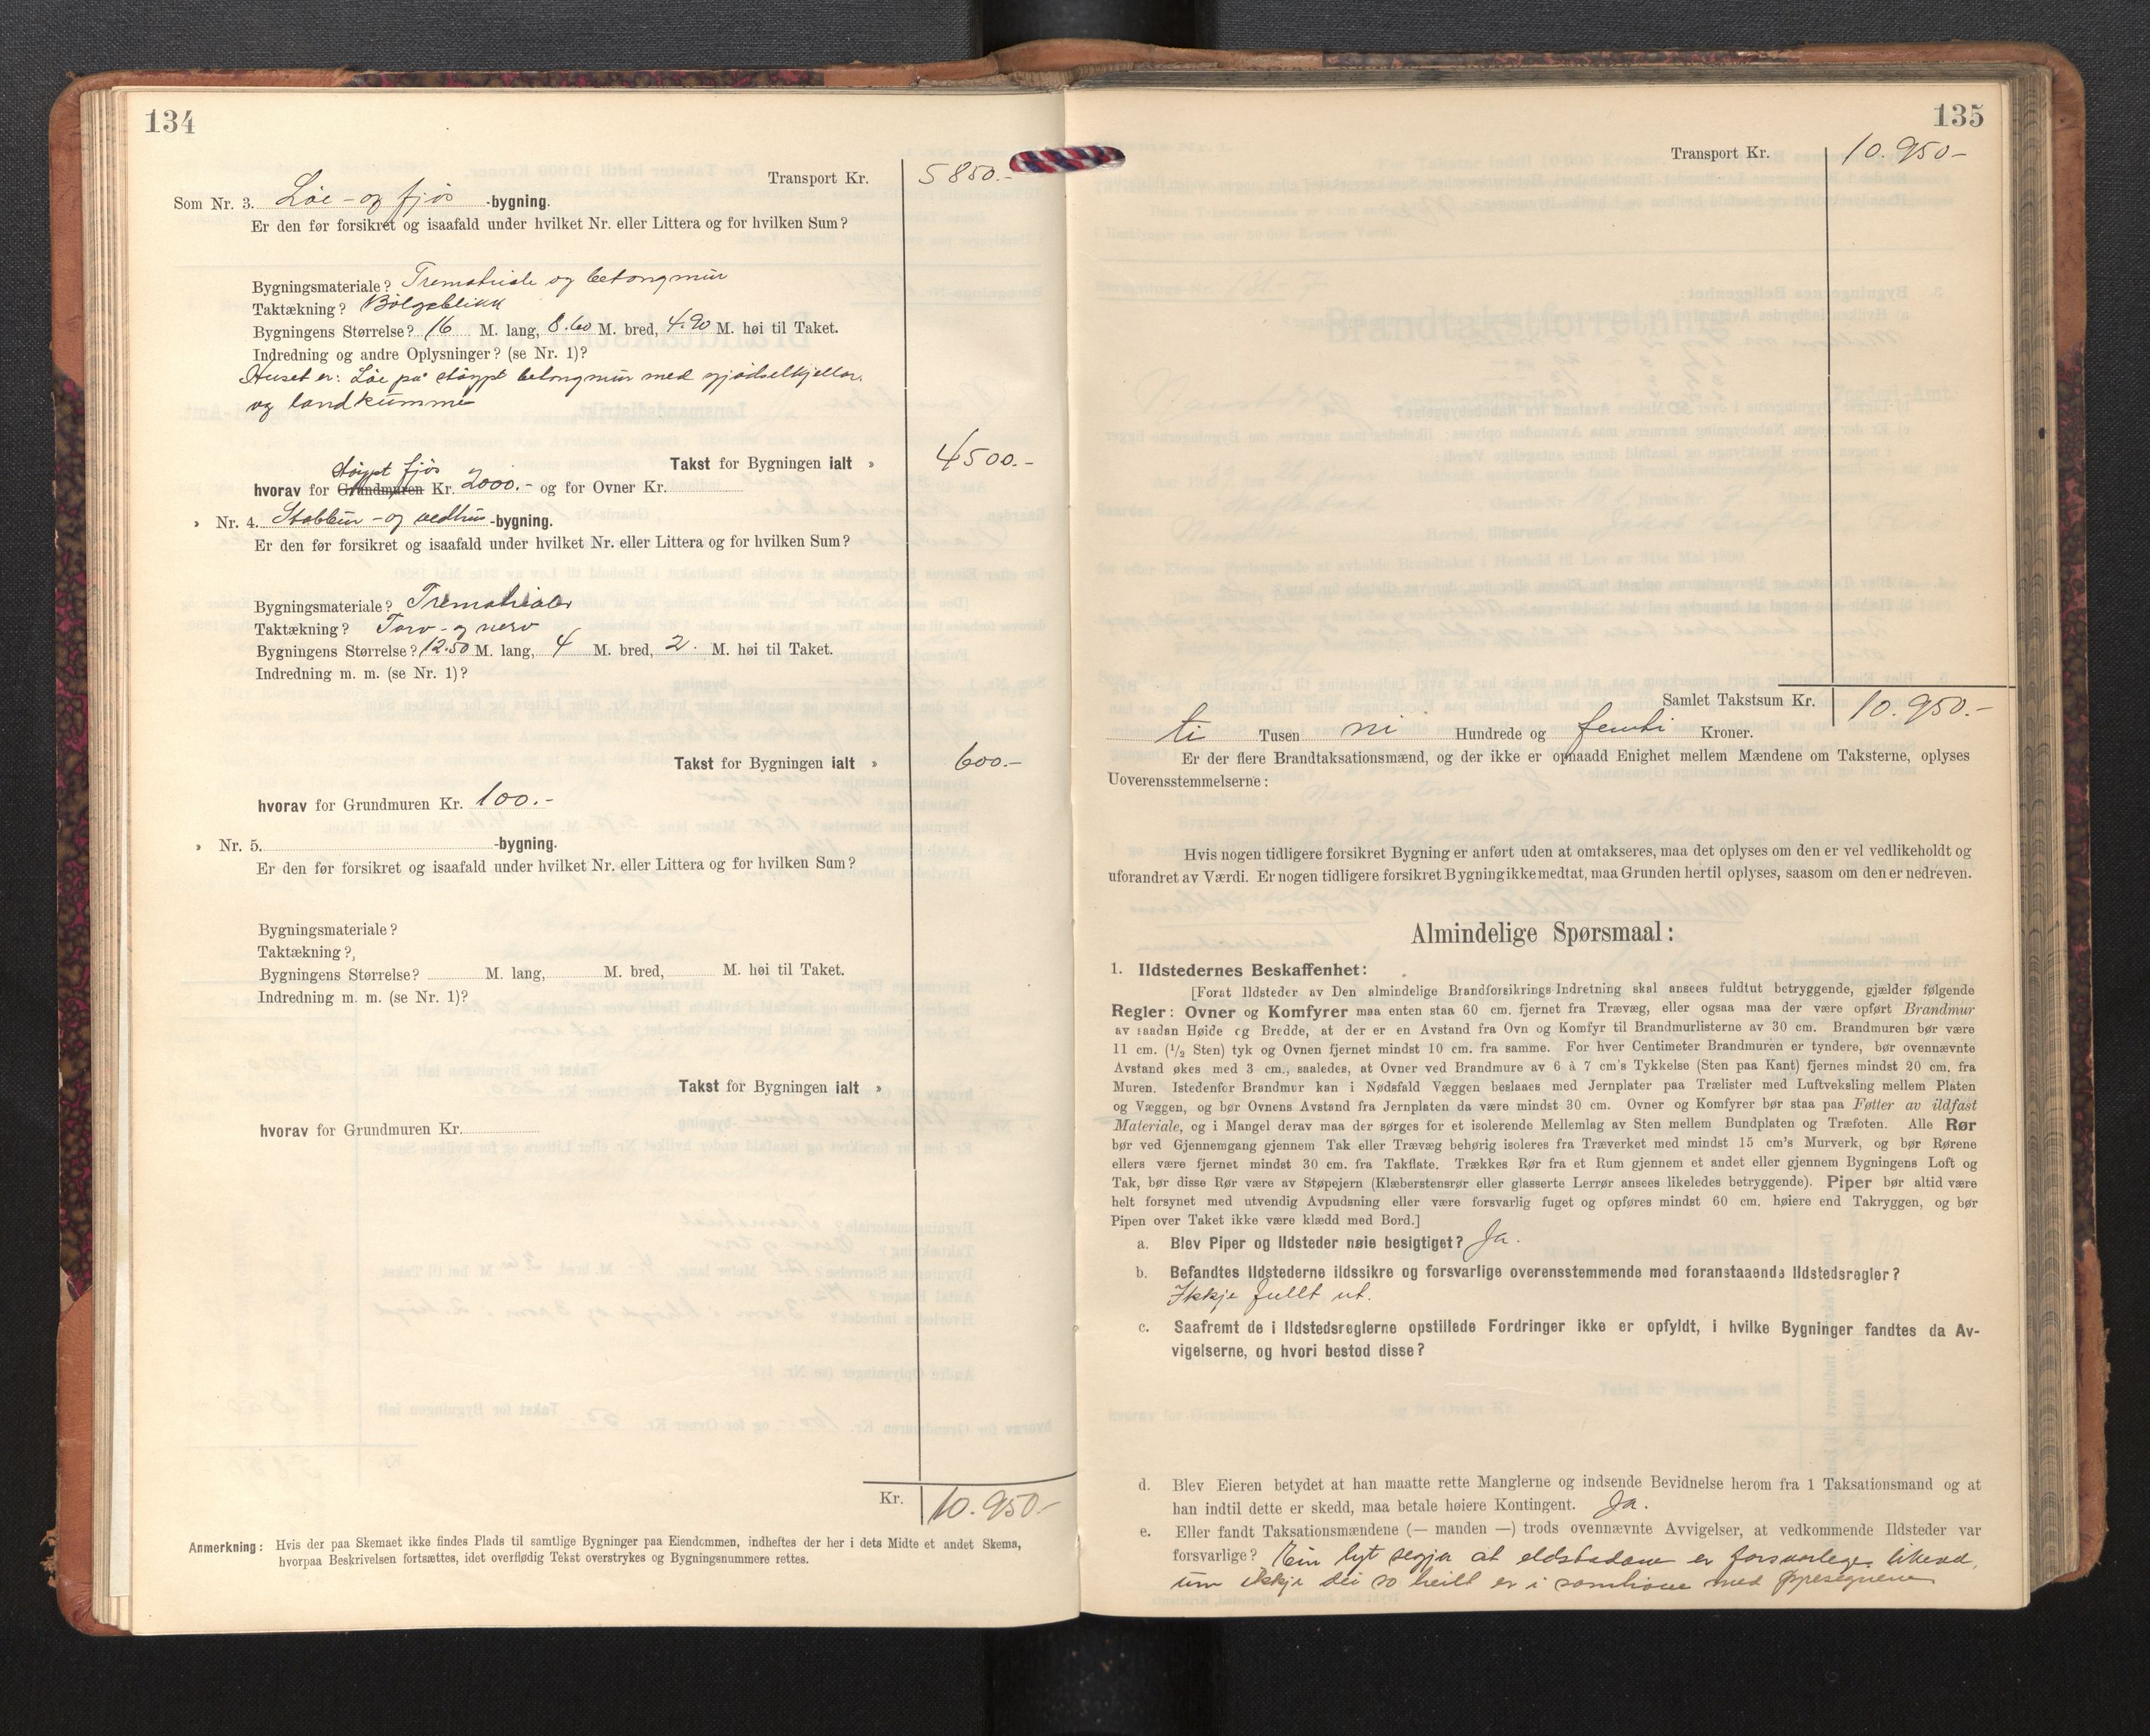 134
Transport Kr. 5850.-
Som Nr. 3. Løe - og fjøs -bygning.
Er den før forsikret og isaafald under hvilket Nr. eller Littera og for hvilken Sum?
Bygningsmateriale? Trematriale og betongmur
Taktækning? Bølgeblikk
Bygningens Størrelse? 16 M. lang, 8.60 M. bred, 4.90 M. høi til Taket.
Indredning og andre Oplysninger? (se Nr. 1)?
Huset er: Løe på støypt betongmur med gjødselkjellar
og landkumme
Takst for Bygningen ialt » 4500.-
støypt fjøs
hvorav for Grundmuren Kr. 2000.- og for Ovner Kr.
» Nr. 4. Stabbur - og vedhus -bygning.
Er den før forsikret og isaafald under hvilket Nr. eller Littera og for hvilken Sum?
Bygningsmateriale? Trematrialer
Taktækning? Torv - og nerv
Bygningens Størrelse? 12.50 M. lang, 4 M. bred, 2. M. høi til Taket.
Indredning m. m. (se Nr. 1)?
Takst for Bygningen ialt » 600.-
hvorav for Grundmuren Kr. 100.-
» Nr. 5. -bygning.
Er den før forsikret og isaafald under hvilket Nr. eller Littera og for hvilken Sum?
Bygningsmateriale?
Taktækning?
Bygningens Størrelse? M. lang, M. bred, M. høi til Taket.
Indredning m. m. (se Nr. 1)?
Takst for Bygningen ialt »
hvorav for Grundmuren Kr.
Kr. 10.950.-
Anmerkning: Hvis der paa Skemaet ikke findes Plads til samtlige Bygninger paa Eiendommen, indheftes der her i dets Midte et andet Skema,
hvorpaa Beskrivelsen fortsættes, idet overflødig Tekst overstrykes og Bygningsnummere rettes.
135
Transport Kr. 10.950-
Samlet Takstsum Kr. 10.950.-
ti Tusen ni Hundrede og femti Kroner.
Er der flere Brandtaksationsmænd, og der ikke er opnaadd Enighet mellem Mændene om Taksterne, oplyses
Uoverensstemmelserne:
Hvis nogen tidligere forsikret Bygning er anført uden at omtakseres, maa det oplyses om den er vel vedlikeholdt og
uforandret av Værdi. Er nogen tidligere forsikret Bygning ikke medtat, maa Grunden hertil oplyses, saasom om den er nedreven.
Almindelige Spørsmaal:
1. Ildstedernes Beskaffenhet:
[Forat Ildsteder av Den almindelige Brandforsikrings-Indretning skal ansees fuldtut betryggende, gjælder følgende
Regler: Ovner og Komfyrer maa enten staa 60 cm. fjernet fra Trævæg, eller ogsaa maa der være opført Brandmur
av saadan Høide og Bredde, at der er en Avstand fra Ovn og Komfyr til Brandmurlisterne av 30 cm. Brandmuren bør være
11 cm. (1/2 Sten) tyk og Ovnen fjernet mindst 10 cm. fra samme. For hver Centimeter Brandmuren er tyndere, bør ovennævnte
Avstand økes med 3 cm., saaledes, at Ovner ved Brandmure av 6 à 7 cm's Tykkelse (Sten paa Kant) fjernes mindst 20 cm. fra
Muren. Istedenfor Brandmur kan i Nødsfald Væggen beslaaes med Jernplater paa Trælister med Luftveksling mellem Platen
og Væggen, og bør Ovnens Avstand fra Jernplaten da være mindst 30 cm. Ovner og Komfyrer bør staa paa Føtter av ildfast
Materiale, og i Mangel derav maa der sørges for et isolerende Mellemlag av Sten mellem Bundplaten og Træfoten. Alle Rør
bør ved Gjennemgang gjennem Tak eller Trævæg behørig isoleres fra Træverket med mindst 15 cm's Murverk, og bør Rørene
ellers være fjernet mindst 30 cm. fra Takflate. Trækkes Rør fra et Rum gjennem et andet eller gjennem Bygningens Loft og
Tak, bør disse Rør være av Støpejern (Klæberstensrør eller glasserte Lerrør ansees likeledes betryggende). Piper bør altid være
helt forsynet med utvendig Avpudsning eller være forsvarlig fuget og opføres mindst 60 cm. høiere end Takryggen, og bør
Pipen over Taket ikke være klædd med Bord.]
a. Blev Piper og Ildsteder nøie besigtiget? Ja.
b. Befandtes Ildstederne ildssikre og forsvarlige overensstemmende med foranstaaende Ildstedsregler?
Ikkje fullt ut.
c. Saafremt de i Ildstedsreglerne opstillede Fordringer ikke er opfyldt, i hvilke Bygninger fandtes da Av-
vigelserne, og hvori bestod disse?
d. Blev Eieren betydet at han maatte rette Manglerne og indsende Bevidnelse herom fra 1 Taksationsmand og at
han indtil dette er skedd, maa betale høiere Kontingent. Ja.
e. Eller fandt Taksationsmændene (— manden —) trods ovennævnte Avvigelser, at vedkommende Ildsteder var
forsvarlige? Ein lyt segja at eldstadane er forsvarlege likevel,
um ikkje dei so heilt er i samhøve med fyresegnene